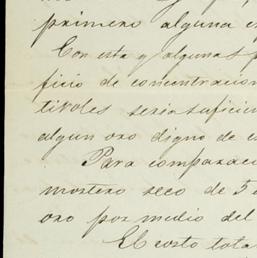 primero alguna
Con esta y algunas
ficio de concentracion
tivoles seria suficien
algun oro digno de
Para comparac
mortero seco de 5
oro por medio del
El costo tota